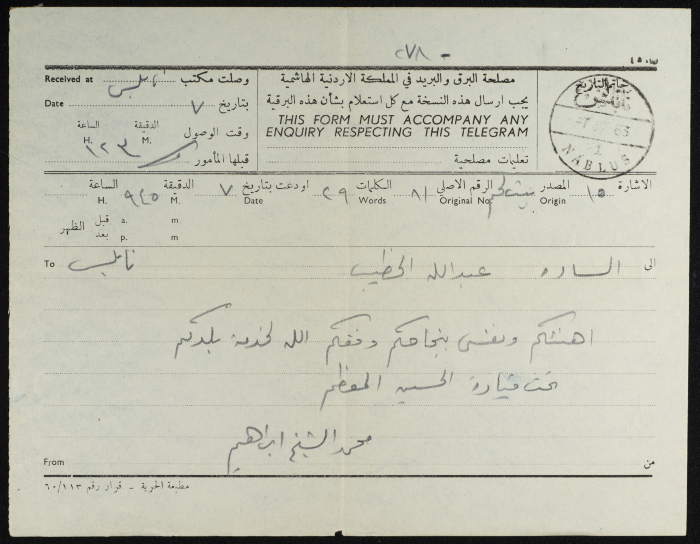 ٢٧٨ -
Received at وصلت مكتب نابلس
Date بتاريخ ٧
الساعة الدقيقة
H. M. وقت الوصول
قبلها المأمور
مصلحة البرق والبريد في المملكة الاردنية الهاشمية
يجب ارسال هذه النسخة مع كل استعلام بشأن هذه البرقية
THIS FORM MUST ACCOMPANY ANY
ENQUIRY RESPECTING THIS TELEGRAM
تعليمات مصلحية
خاتم التاريخ
نابلس
63
NABLUS
الاشارة ١٥ المصدر بيت لحم الرقم الاصلي ٨١ الكلمات ٢٩ اودعت بتاريخ ٧ الدقيقة الساعة ٩٤٥
Origin Original No. Words Date M. H.
الظهر قبل a. m
بعد p. m
الى الساده عبدالله الخطيب نابلس To
اهنئكم ونفسي بنجاحكم وفقكم الله لخدمة بلدكم
تحت قيادة الحسين المعظم
محمد الشيخ ابراهيم
From من
مطبعة الحرية - قرار رقم ٦٠/١١٣